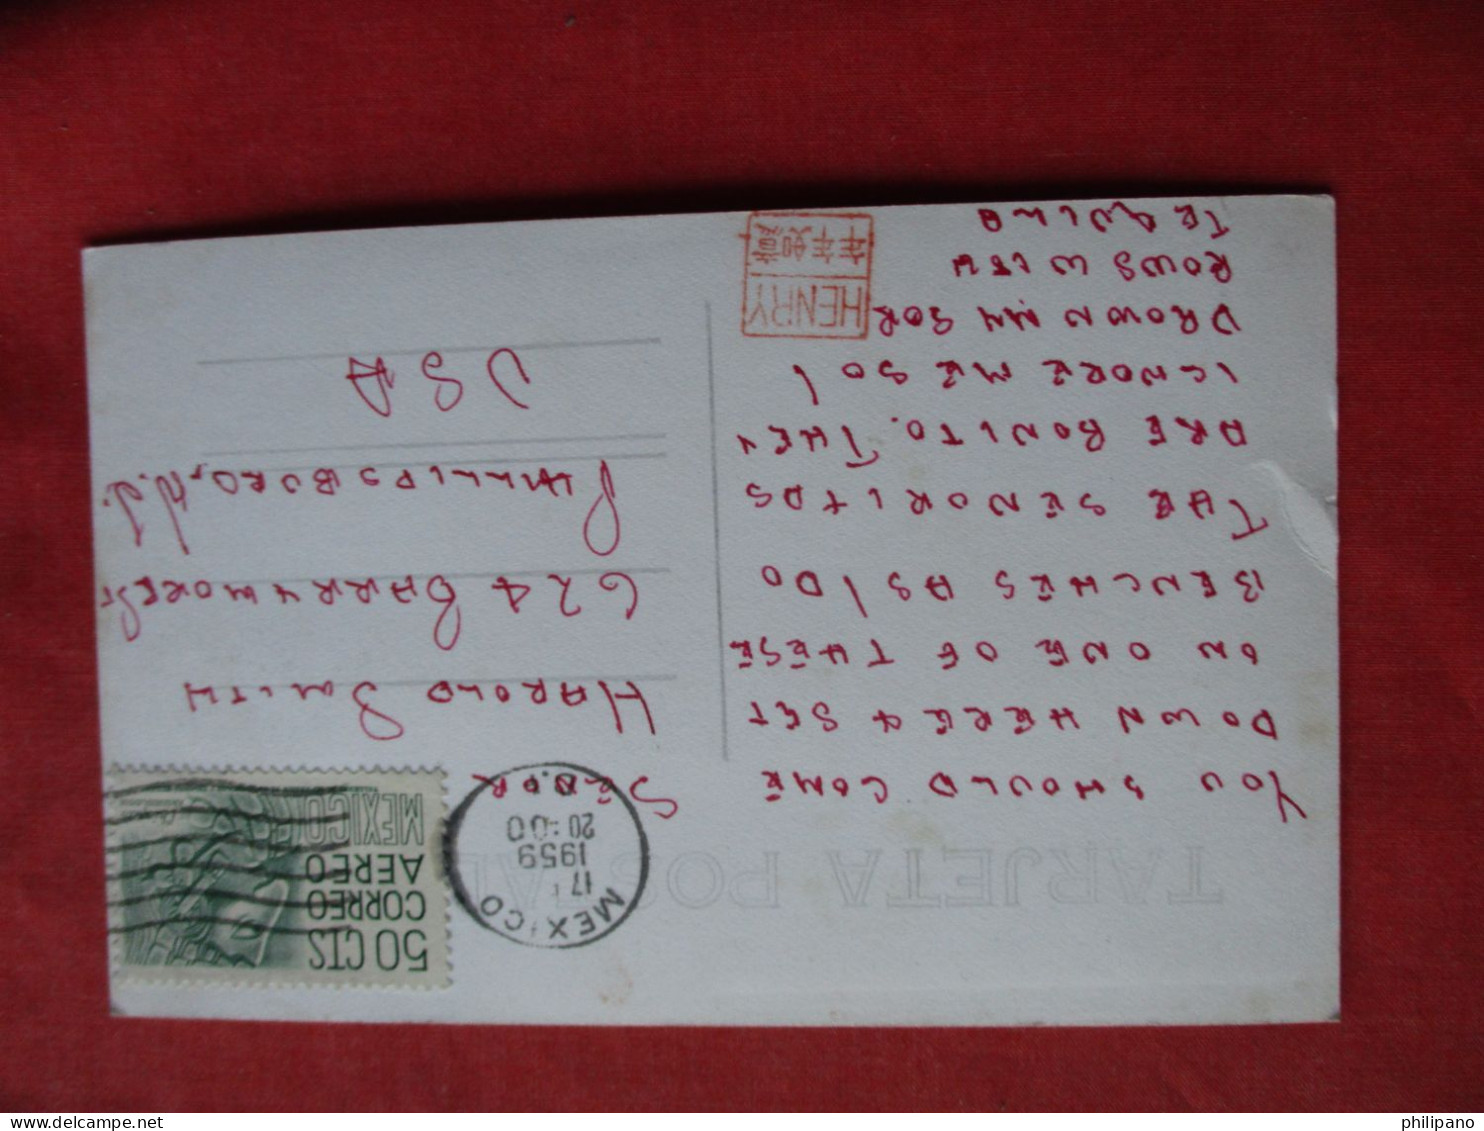 TARJETA POSTAL
YOU SHOULD COME
DOWN HERE & SET
ON ONE OF THESE
BENCHES AS I DO
THE SENORITAS
ARE BONITO. THEY
IGNORE ME SO I
DROWN MY SOR
ROWS WITH
TEQUILA
HENRY
年年如意
50 CTS
CORREO
AEREO
MEXICO
MEXICO
17
1959
20-00
D.F.
SENOR
HAROLD SMITH
624 BARRYMORE ST
PHILLIPSBURG, N.J.
USA
philipano